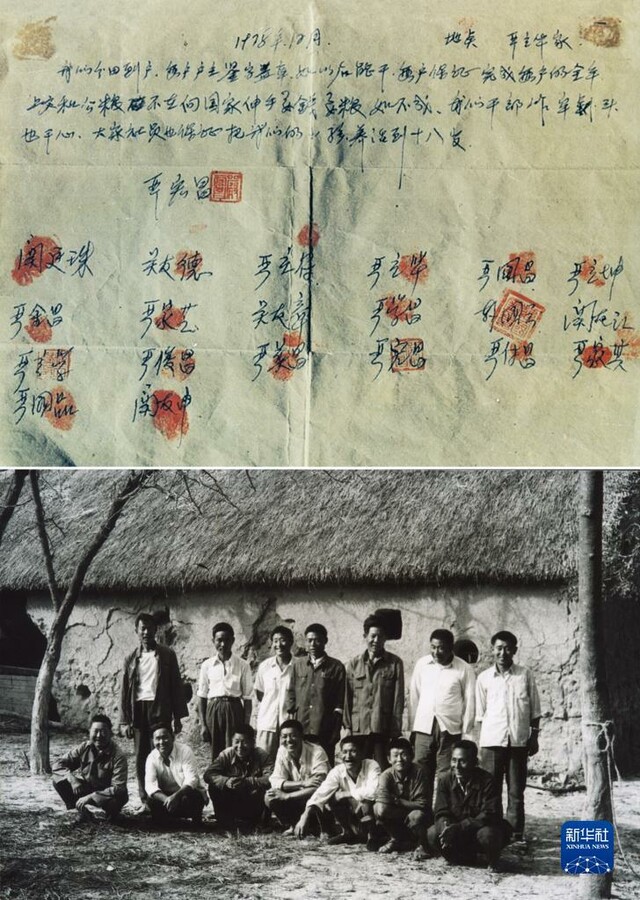 1978年12月 地点 严立华家
我们分田到户，每户户主签字盖章，如以后能干，每户保证完成每户的全年
上交和公粮，不在向国家伸手要钱要粮，如不成，我们干部作牢刹头
也干心，大家社员也保证把我们的小孩养活到十八岁。
严宏昌
关廷珠 关友德 严立付 严立华 严国昌 严立坤
严金昌 严家芝 关友章 严学昌 韩国云 关友江
严立学 严俊昌 严美昌 严宏昌 严付昌 严家其
严国品 关友申
新华社
XINHUA NEWS